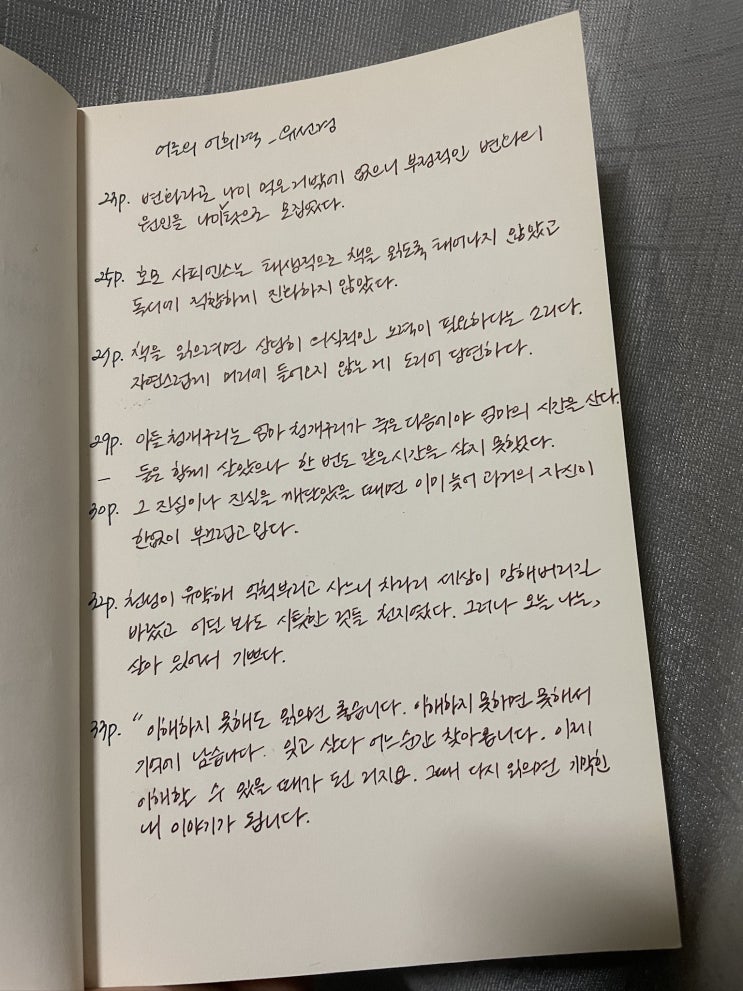 어른의 어휘력 - 유선경
23p. 변화라곤 나이 먹은 거밖에 없으니 부정적인 변화의
원인을 나이탓으로 모집었다.
25p. 호모 사피엔스는 태생적으로 책을 읽도록 태어나지 않았고
독서에 적합하게 진화하지 않았다.
27p. 책을 읽으려면 상당히 의식적인 노력이 필요하다는 소리다.
자연스럽게 머리에 들어오지 않는 게 도리어 당연하다.
29p. 아들 청개구리는 엄마 청개구리가 죽은 다음에야 엄마의 시간을 산다.
- 둘은 함께 살았으나 한 번도 같은 시간을 살지 못했다.
30p. 그 진심이나 진실을 깨달았을 때면 이미 늦어 과거의 자신이
한없이 부끄럽고 밉다.
32p. 천성이 유약해 억척부리고 사느니 차라리 세상이 망해버리길
바랐고 어딜 봐도 시틋한 것들 천지였다. 그러나 오늘 나는,
살아 있어서 기쁘다.
33p. "이해하지 못해도 읽으면 좋습니다. 이해하지 못하면 못해서
기억에 남습니다. 잊고 살다 어느순간 찾아옵니다. 이제
이해할 수 있을 때가 된 거지요. 그때 다시 읽으면 기막힌
내 이야기가 됩니다.